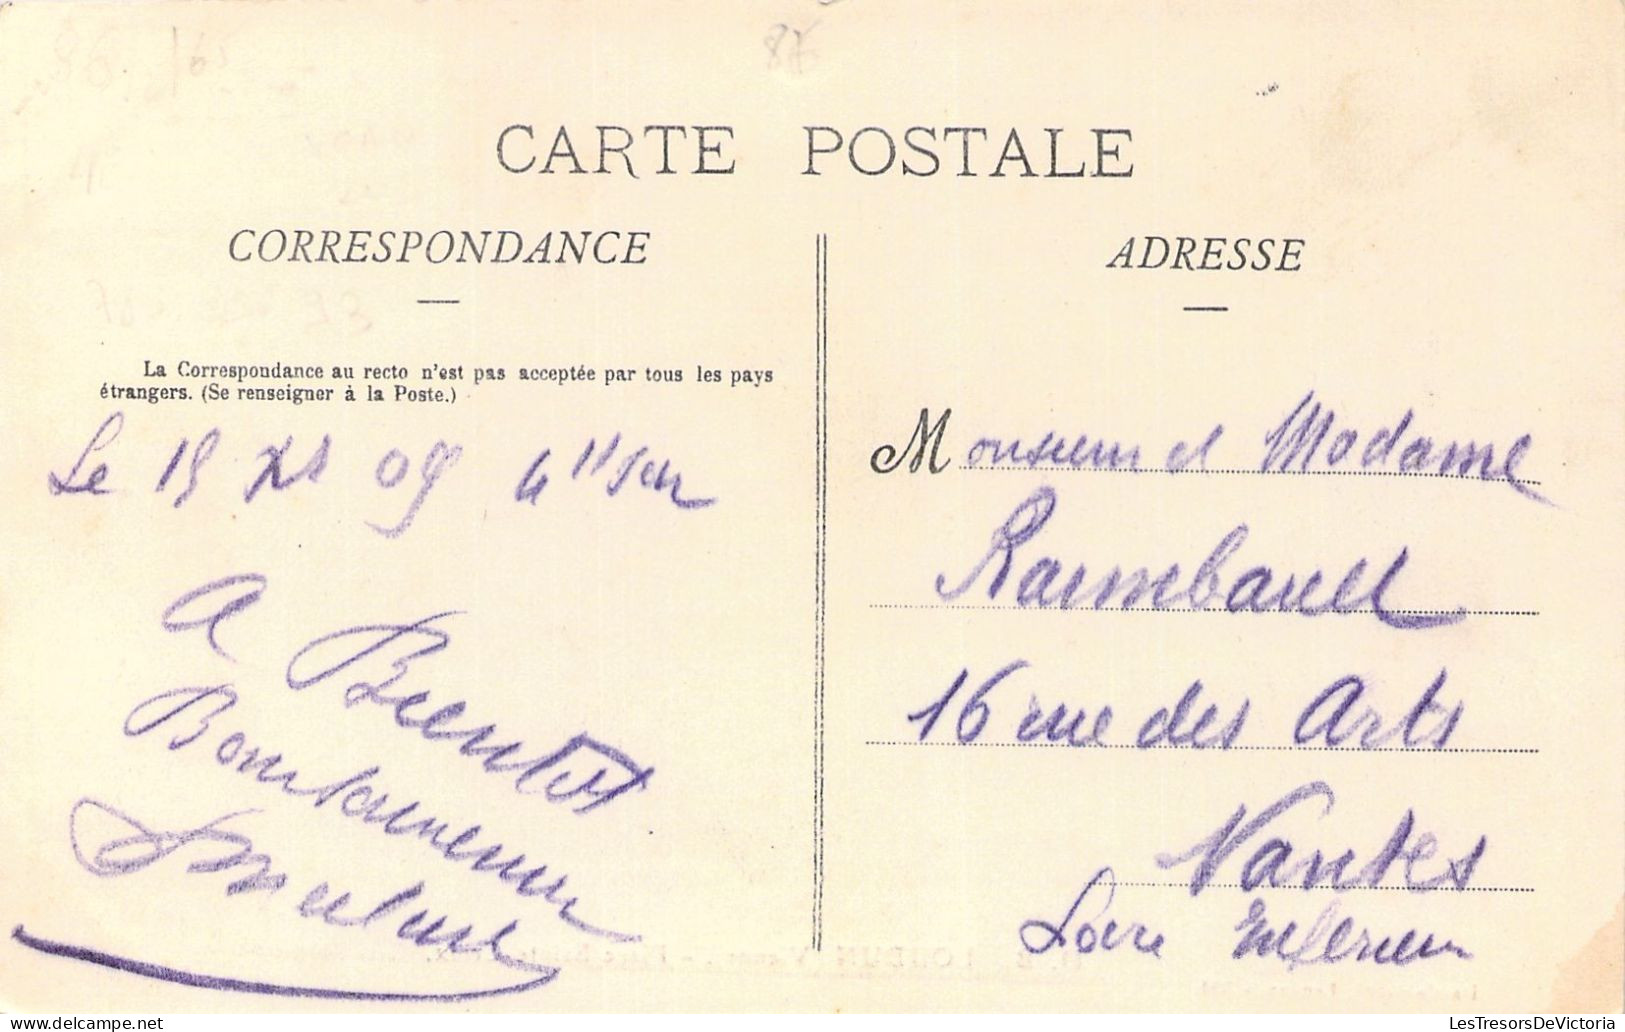 CARTE POSTALE
CORRESPONDANCE
La Correspondance au recto n'est pas acceptée par tous les pays
étrangers. (Se renseigner à la Poste.)
Le 19 Xbr 09 4 h soir
A Bientot
ADRESSE
Monsieur et Madame
Raimbault
16 rue des Arts
Nantes
Loire Inferieure
LesTresorsDeVictoria
www.delcampe.net